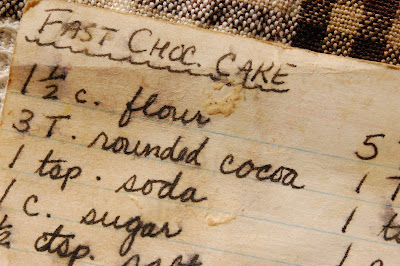 FAST CHOC. CAKE
1 1/2 c. flour
3 T. rounded cocoa
1 tsp. soda
1 c. sugar
1/2 tsp. salt
5
1 T
1 ts
1